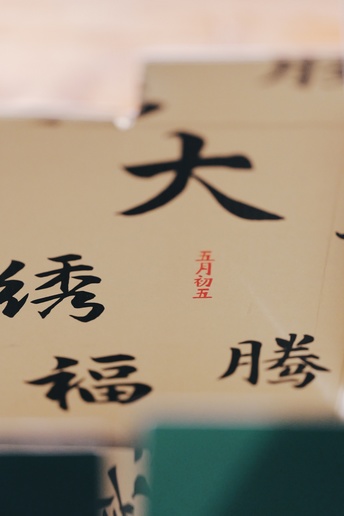 大
五月初五
绣
腾
福